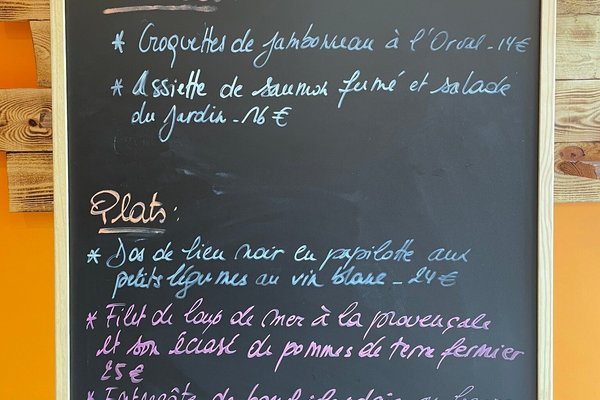 * Croquettes de jambonneau à l'Orval - 14 €
* Assiette de saumon fumé et salade
du jardin - 16 €
Plats :
* Dos de lieu noir en papilotte aux
petits légumes au vin blanc - 24 €
* Filet de loup de mer à la provençale
et son écrasé de pommes de terre fermier
25 €
* Entrecôte de